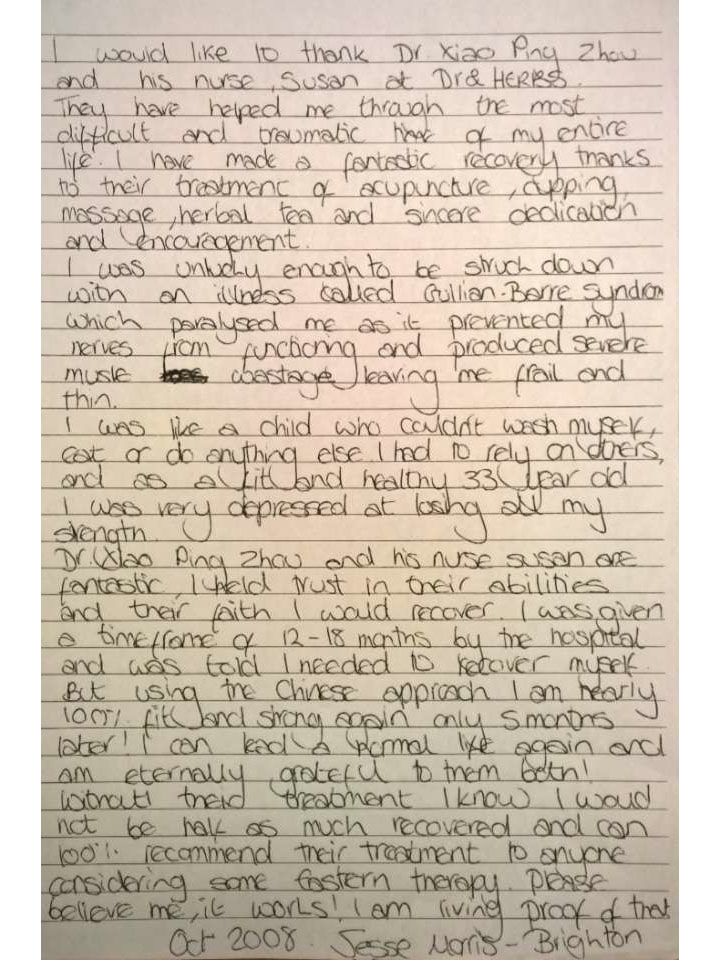 I would like to thank Dr. Xiao Ping Zhou
and his nurse, Susan at Dr & HERBS.
They have helped me through the most
difficult and traumatic time of my entire
life. I have made a fantastic recovery thanks
to their treatment of acupuncture, cupping,
massage, herbal tea and sincere dedication
and encouragement.
I was unlucky enough to be struck down
with an illness called Gullian-Barre Syndrom
which paralysed me as it prevented my
nerves from functioning and produced severe
muscle wastage leaving me frail and
thin.
I was like a child who couldn't wash myself,
eat or do anything else I had to rely on others,
and as a fit and healthy 33 year old
I was very depressed at losing all my
strength.
Dr. Xiao Ping Zhou and his nurse susan are
fantastic, I held trust in their abilities
and their faith I would recover. I was given
a timeframe of 12-18 months by the hospital
and was told I needed to recover myself.
But using the Chinese approach I am nearly
100% fit and strong again only 5 months
later! I can lead a normal life again and
am eternally grateful to them both!
Without their treatment I know I would
not be half as much recovered and can
100% recommend their treatment to anyone
considering some Eastern therapy. Please
believe me, it works! I am living proof of that
Oct 2008. Jesse Morris - Brighton